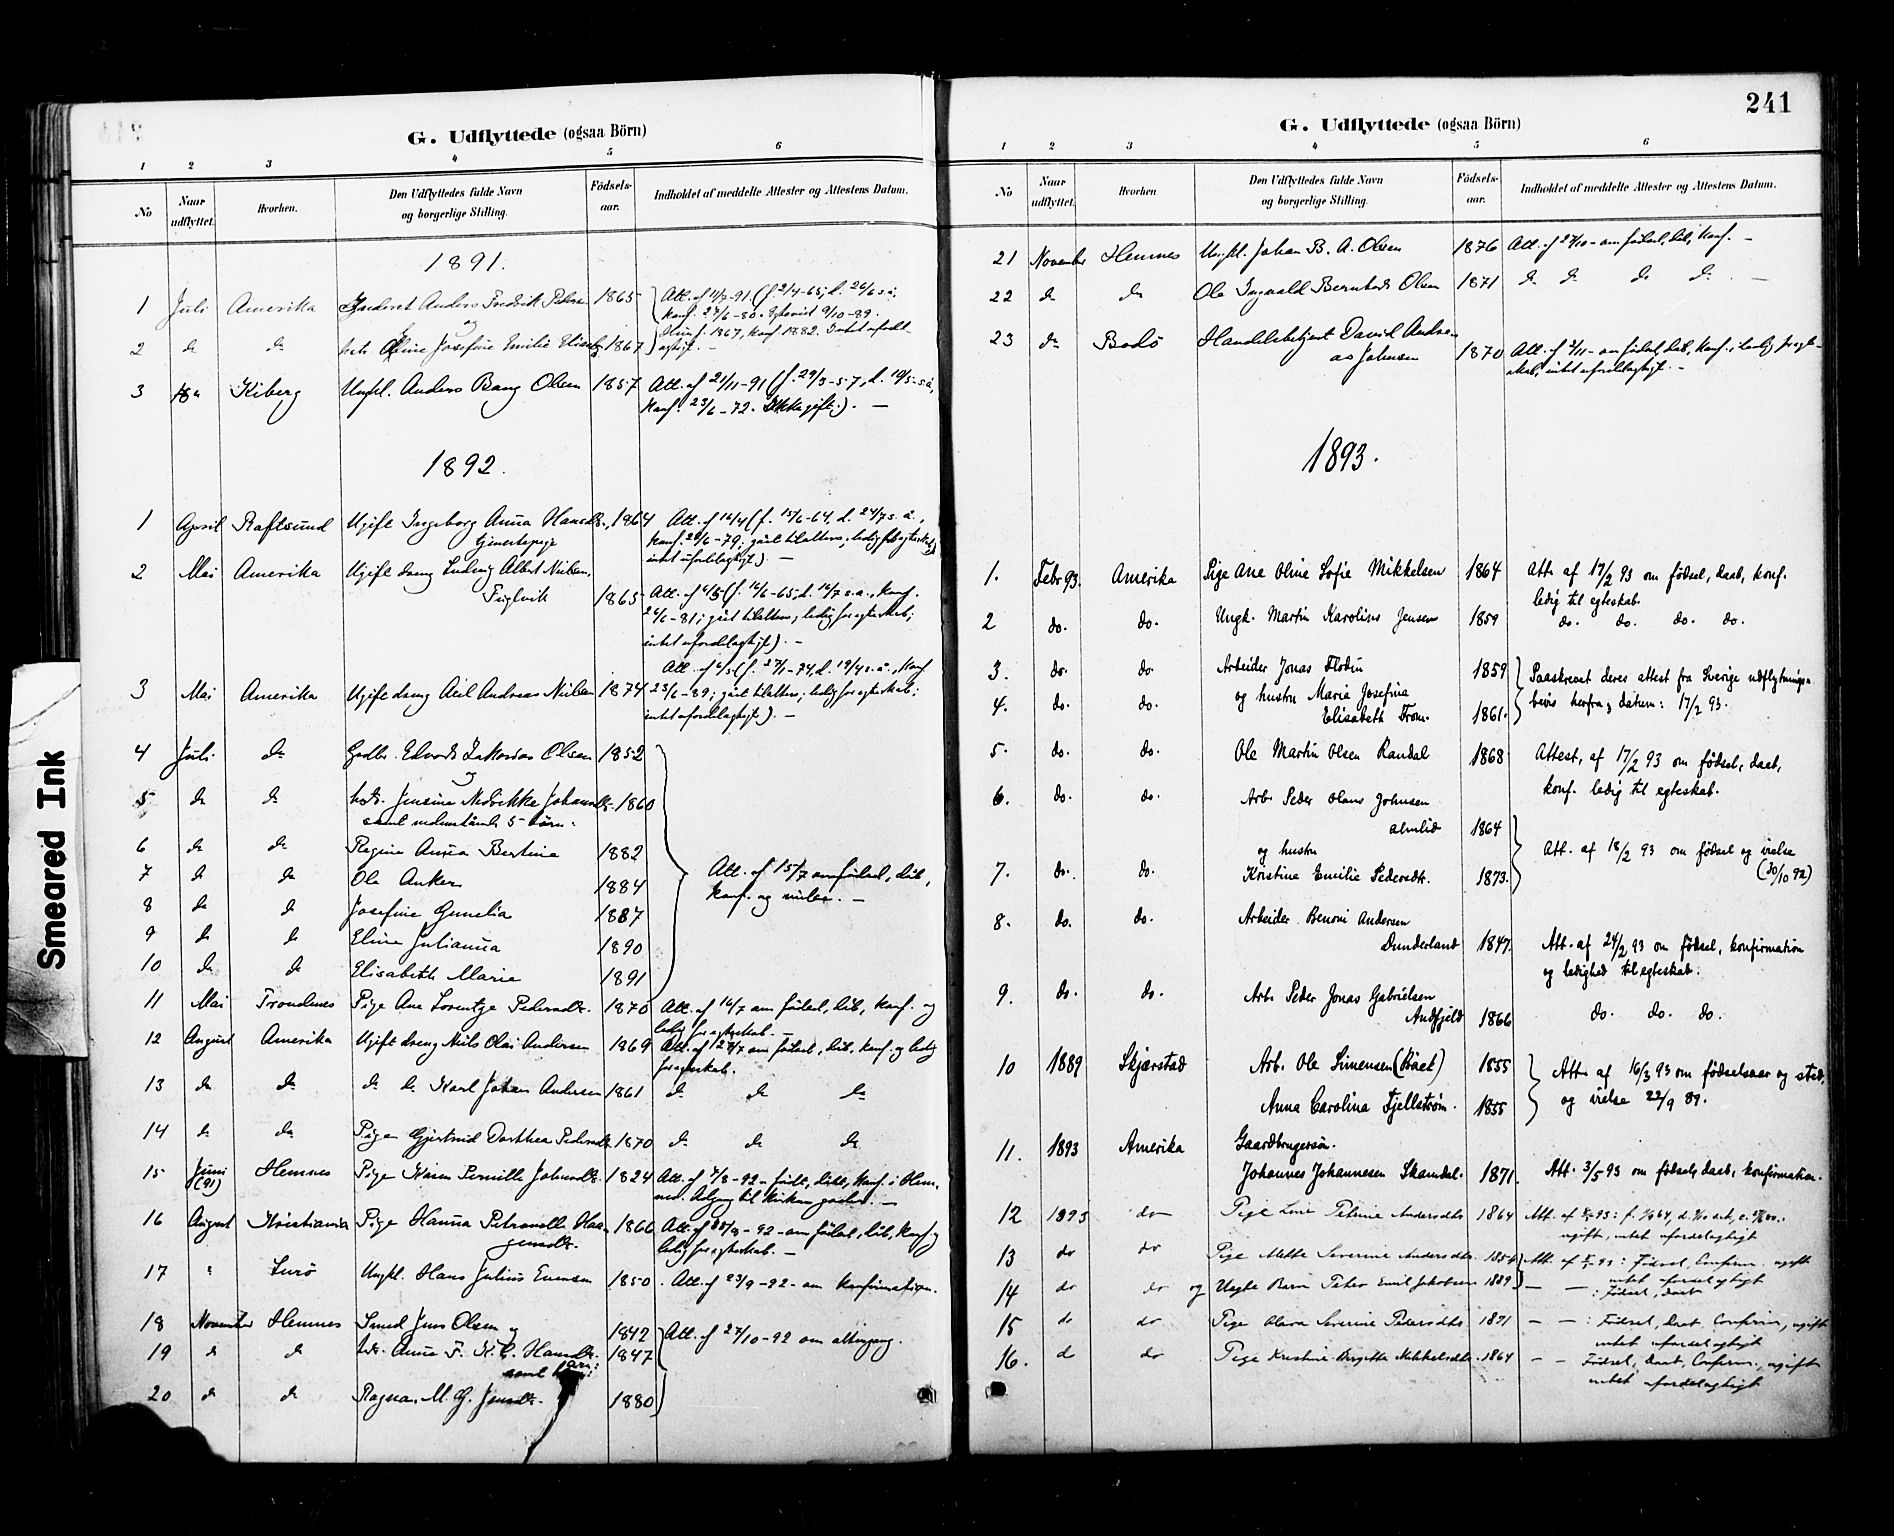 Smeared Ink
G. Udflyttede (ogsaa Börn)
1 2 3 4 5 6
No
Naar udflyttet.
Hvorhen.
Den Udflyttedes fulde Navn og borgerlige Stilling.
Födsels-aar.
Indholdet af meddelte Attester og Attestens Datum.
1891.
1 Juli Amerika Anders Fredrik 1865 Att. af 11/7-91 (f. 2/4-65, d.
og konf. 27/6-80.
2 do do Josefine Emilie 1867 1867, konf. 1882. Intet ufordel-
agtigt. -
3 Kiberg Ungkl. Anders Bang Olsen 1857 Att. af 21/11-91 (f. 29/3-57, d. 10/5 s. å.,
Konf. 23/6-72. Ikke gift.). -
1892.
1 April Raftsund Ugift Ingeborg Anna Hansdtr., 1864 Att. af 16/4 (f. 15/6-64, d. 24/7 s. å.,
tjenestepige konf. 20/6-79; gået til alters; ledig for egteskab;
intet ufordelagtigt). -
2 Mai Amerika Ugift dreng Ludvig Albert Nielsen,
Fuglvik 1865 Att. af 4/5 (f. 16/6-65, d. 16/7 s. å., konf.
26/6-81; gået til alters; ledig for egteskab;
intet ufordelagtigt). -
Att. af (f. 27/1-74, d. 19/4 s. å., konf.
3 Mai Amerika Ugift dreng Axel Andreas Nielsen 1874 23/6-89; gået til alters; ledig for egteskab;
intet ufordelagtigt). -
4 Juli do Gdbr. Edvard Zakarias Olsen 1852
og
5 do do hstr. Jensine Johansdtr. 1860
samt nedenstående 5 börn:
6 do do Regine Anna Bertine 1882
7 do do Ole Anker 1884 Att. af 15/7 om födsel, dåb,
konf. og vielse. -
8 do do Josefine Gunelia 1887
9 do do Eline Julianna 1890
10 do do Elisabeth Marie 1891
11 Mai Trondenes Pige Ane Lorentze Pedersdtr. 1870 Att. af 16/7 om födsel, dåb, konf. og
ledig for egteskab. -
12 August Amerika Ugift dreng Nils Olai Andersen 1869 Att. af 28/7 om födsel, dåb, konf. og ledig
for egteskab.
13 do do do do Karl Johan Andersen 1861 do do do
14 do do Pige Gjertrud Dorthea Pedersdtr. 1870 do do do
15 Juni (91) Hemnes Pige Karen Pernille Johnsdtr. 1824 Att. af 7/8-92 - födt, döbt, konf. i Hem-
nes. Adgang til kirkens goder. -
16 August Kristiania Pige Hanna Petronelle Haa-
gensdtr. 1866 Att. af -92 - om födsel, dåb, konf. og
ledig for egteskab. -
17 " Lurö Ungkl. Hans Julius Evensen 1850 Att. af 23/9-92 - om konfirmation.
18 November Hemnes Smed Jens Olsen og 1842 Att. af 27/10-92 om altergang.
19 do do hstr. Anne F. K. C. Hansdtr. 1847
samt
20 do do Ragna M. G. Jensdtr. 1880
241
G. Udflyttede (ogsaa Börn)
1 2 3 4 5 6
No
Naar udflyttet.
Hvorhen.
Den Udflyttedes fulde Navn og borgerlige Stilling.
Födsels-aar.
Indholdet af meddelte Attester og Attestens Datum.
21 November Hemnes Ungkl. Johan B. A. Olsen 1876 Att. af 27/10 - om födsel, dåb, konf. -
22 do do Ole Ingvald Bernhard Olsen 1871 do do do do -
23 do Bodö Handelsbetjent David Andre-
as Johnsen 1870 Att. af 2/11 - om födsel, dåb, konf., ledig for egte-
skab, intet ufordelagtigt. -
1893.
1. Febr 93. Amerika Pige Ane Oline Sofie Mikkelsen 1864 Att. af 17/2 93 om födsel, daab, konf.
ledig til egteskab.
2 do. do. Ungk. Martin Karolius Jensen 1859 do. do. do. do.
3. do. do Arbeider Jonas Flodin 1859 Paaskrevet deres attest fra Sverige udflytnings-
og hustru Maria Josefina bevis herfra, datum: 17/2 93.
4. do. do. Elisabeth From. 1861.
5. do. do. Ole Martin Olsen Randal 1868 Attest, af 17/2 93 om födsel, daab,
konf. ledig til egteskab.
6. do. do. Arb. Peder Olaus Johnsen
Almlid 1864
og hustru Att. af 18/2 93 om födsel og vielse
7. do. do. Kristine Emilie Pedersdtr. 1873. (30/10 92)
8. do. do. Arbeider Benoni Andersen
Dunderland 1847. Att. af 24/2 93 om födsel, konfirmation
og ledighed til egteskab.
9. do. do. Arb. Peder Jonas Gabrielsen
Andfjeld 1866 do. do. do.
10 1889 Skjerstad Arb. Ole Simensen 1855 Att. af 16/3 93 om födselsaar og sted,
Anna Carolina Fjellström. 1855 og vielse 22/9 89.
11. 1893 Amerika Gaardbrugersön.
Johannes Johannesen Skamdal. 1871. Att. 3/5 93 om födsel, daab, konfirmation.
12 1893 do Pige Line Petrine Andersdtr 1864 Att. af 93:
ugift, intet ufordelagtigt
13 do do Pige Mette Severine Andersdtr. 1854 Att. af : Födsel, Confirm. ugift
intet ufordelagtigt
14 do do og Uegte Barn Peter Emil Jakobsen 1889 - - : Födsel, daab
15 do do Pige Olava Severine Pedersdtr 1871 - - : Födsel, Daab, Confirm., ugift
intet ufordelagtigt
16. do do Pige Kristine Birgitte Mikkelsdtr. 1864 - - Födsel, Daab, Confirm., ugift
intet ufordelagtigt